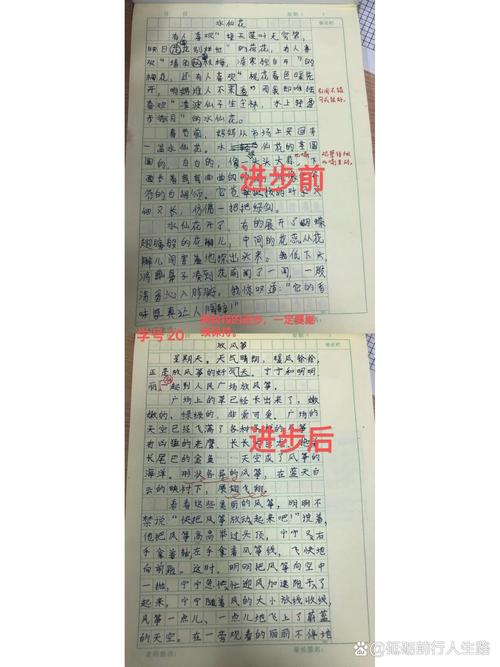 水仙花
有人喜欢"接天莲叶无穷碧,
映日荷花别样红"的荷花,有人喜
欢"墙角数枝梅,凌寒独自开"的
梅花,还有人喜欢"桃花春色暖先
开,明媚谁人不来看"而我却唯独
喜欢"凌波仙子生尘袜,水上轻盈
步微月"的水仙花。
引用不错
春节前,妈妈从市场上买回来
一盆水仙花。水仙花的茎圆
圆的、白白的,像大头大蒜,下
面长着弯弯曲曲的
比喻
观察仔细
爷的白胡须。
细又长,仿佛一把把绿剑。
进步前
水仙花开了,有的展开了蝴蝶
翅膀般的花瓣儿,中间的花蕊从花
瓣儿间害羞地探出头来。我低下头,
清香沁入肺腑。我惊叹道:"它的香
味要真让人陶醉!"
学号20
放风筝
星期天,天气晴朗,暖风徐徐,
正是放风筝的好天气,宁宁和明明
一起到人民广场放风筝。
广场上的草已经长出来了,嫩
嫩的、绿绿的,非常可爱。广场的
天空已经飞满了各种各样的风筝,
有凶猛的老鹰、长长的
长尾巴的金鱼……天空成了风筝的
海洋。形状各异的风筝,在蓝天白
云的映衬下,展翅飞翔。
进步后
看着这些美丽的风筝,明明不
禁说:"快把风筝放动起来吧!"说着,
他把风筝高高举过头顶,宁宁见右
手拿着轴左手拿着风筝线,飞快地
向前跑。这时,明明把风筝向空中
一抛,宁宁急忙迎风加速跑
起来,宁宁随着风的大小放线收线,
风筝一点儿、一点儿地飞上了蔚蓝
的天空。在一旁观看的丽丽不停地
老师批语:
家长签名:
@孤狼前行人生路